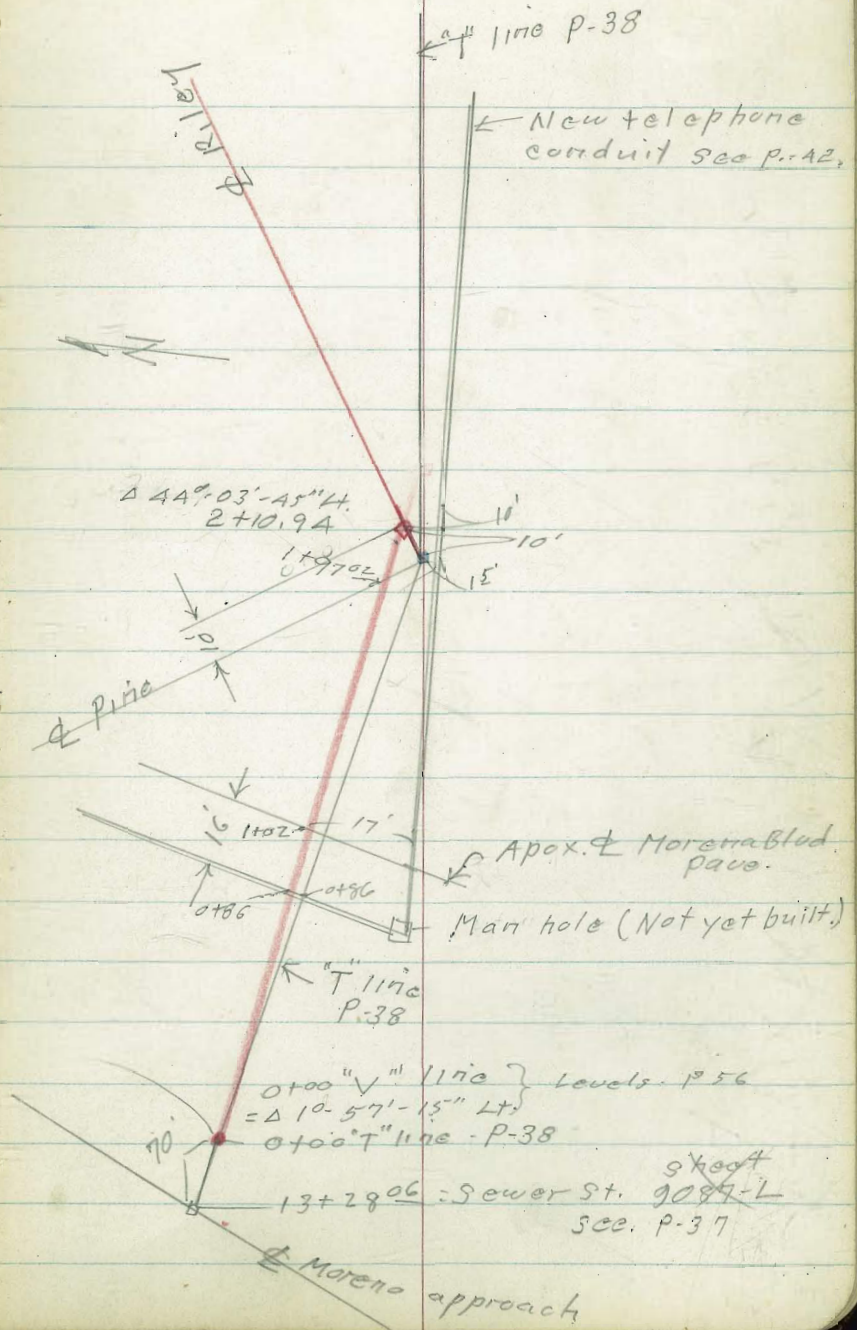 "T" line P-38
℄ Riley
New telephone
conduit see p.-42.
N
Δ 44°-03'-45" Lt.
2+10.94
10'
10'
15'
10'
℄ Pine
16'
1+02
17'
Apox. ℄ Morena Blvd.
pave.
0+86
0+86
Man hole (Not yet built.)
"T" line
P-38
0+00 "V" line
= Δ 1°-57'-15" Lt.
Levels. P 56
0+00 "T" line - P-38
70'
13+28 06 = Sewer St. 9087-L
sheet
see. P-37
℄ Moreno approach